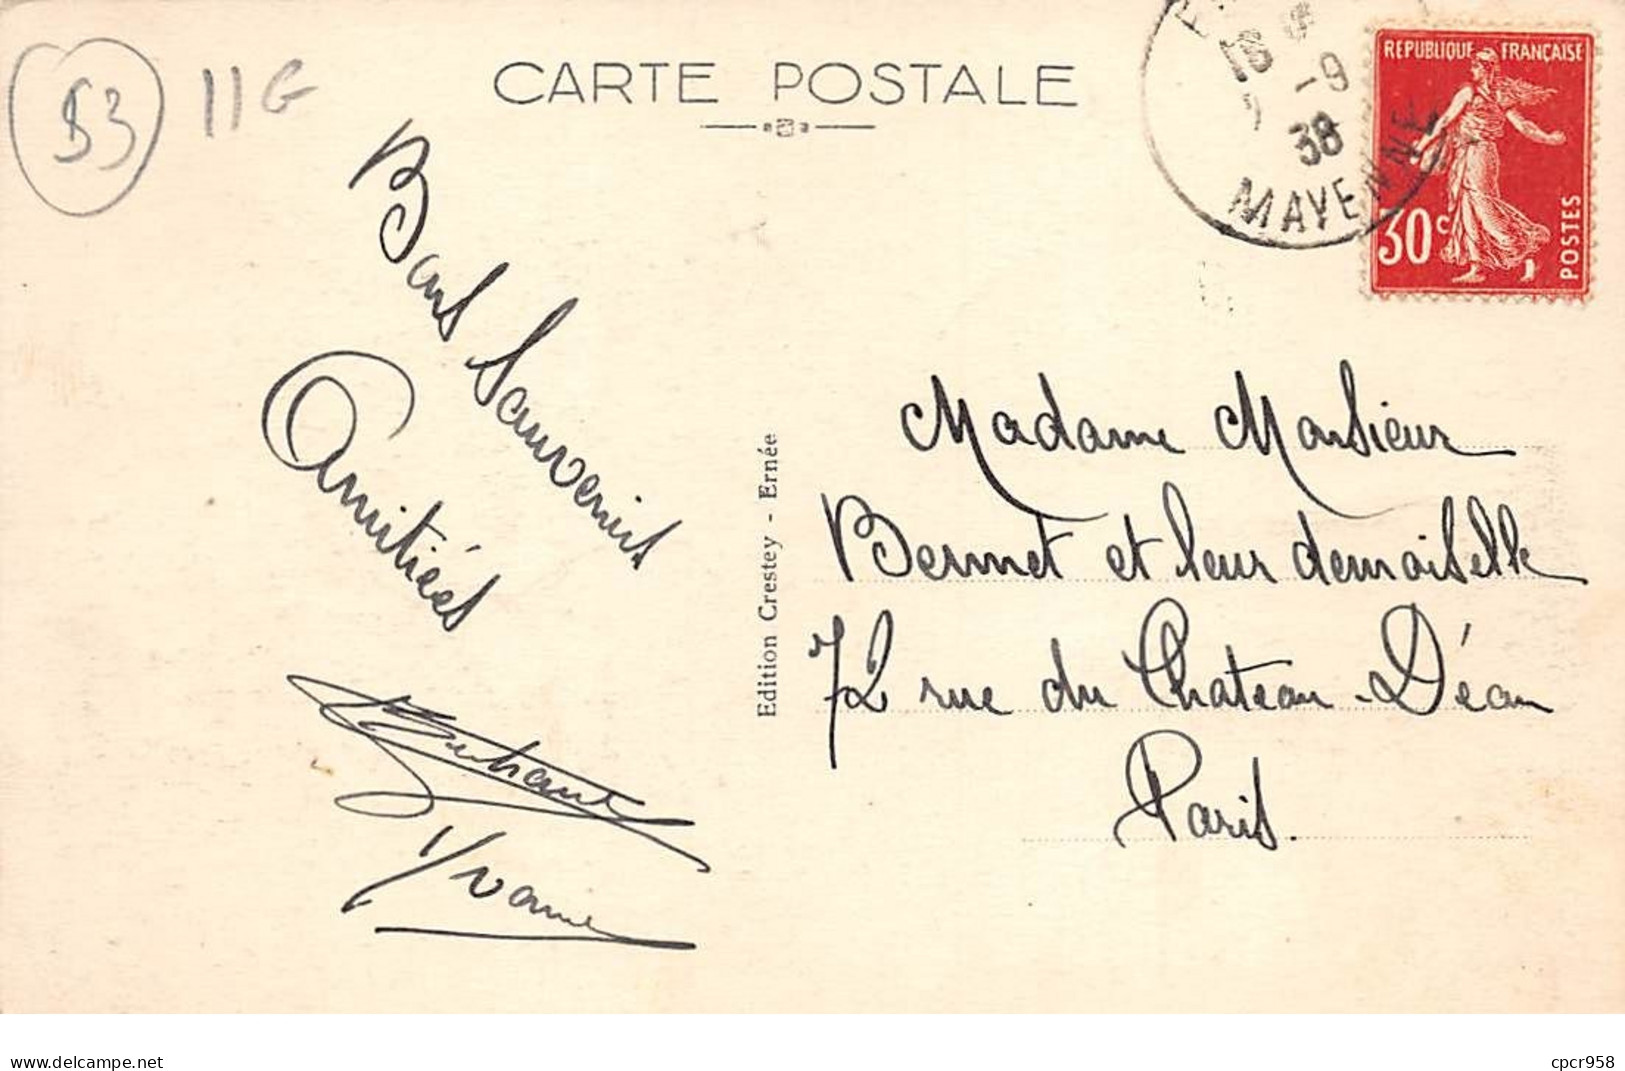 53
11G
CARTE POSTALE
-9
38
MAYENNE
REPUBLIQUE FRANÇAISE
30c
POSTES
Bons Souvenirs
Amitiés
Yvonne
Edition Crestey - Ernée
Madame Monsieur
et leur demoiselle
72 rue du Chateau-D'éau
Paris.
www.delcampe.net
cpcr958